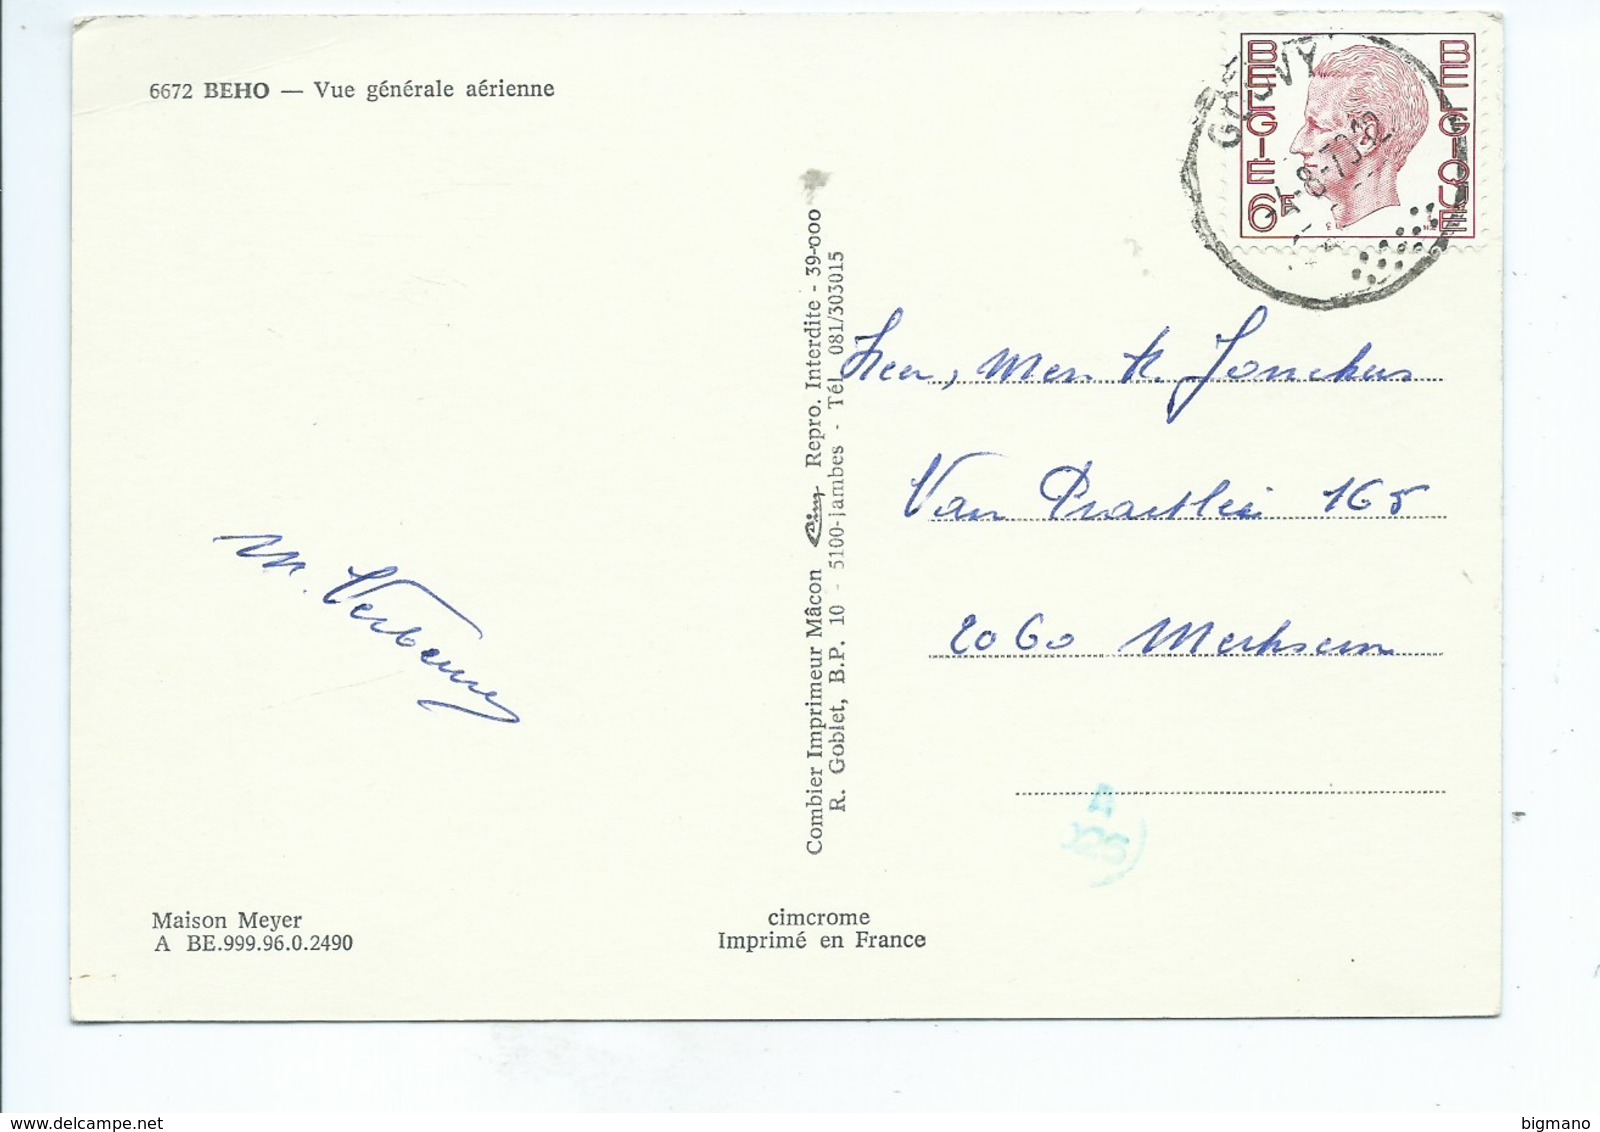 6672 BEHO — Vue générale aérienne
GOUVY
BELGIE
BELGIQUE
6F
Combier Imprimeur Mâcon Cim Repro. Interdite - 39-000
R. Goblet, B.P. 10 - 5100-Jambes - Tél. 081/303015
Heer, Mev. K. Jonckers
Van Praetlei 165
2060 Merksem
M. Verbeure
Maison Meyer
A BE.999.96.0.2490
cimcrome
Imprimé en France
bigmano